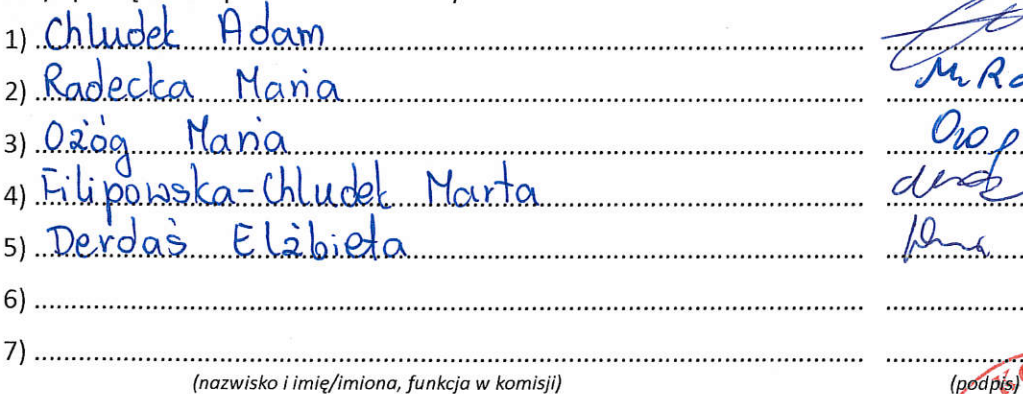 1) Chludek Adam
2) Radecka Maria
3) Ożóg Maria
4) Filipowska-Chludek Marta
5) Derdaś Elżbieta
6)
7)
(nazwisko i imię/imiona, funkcja w komisji) (podpis)